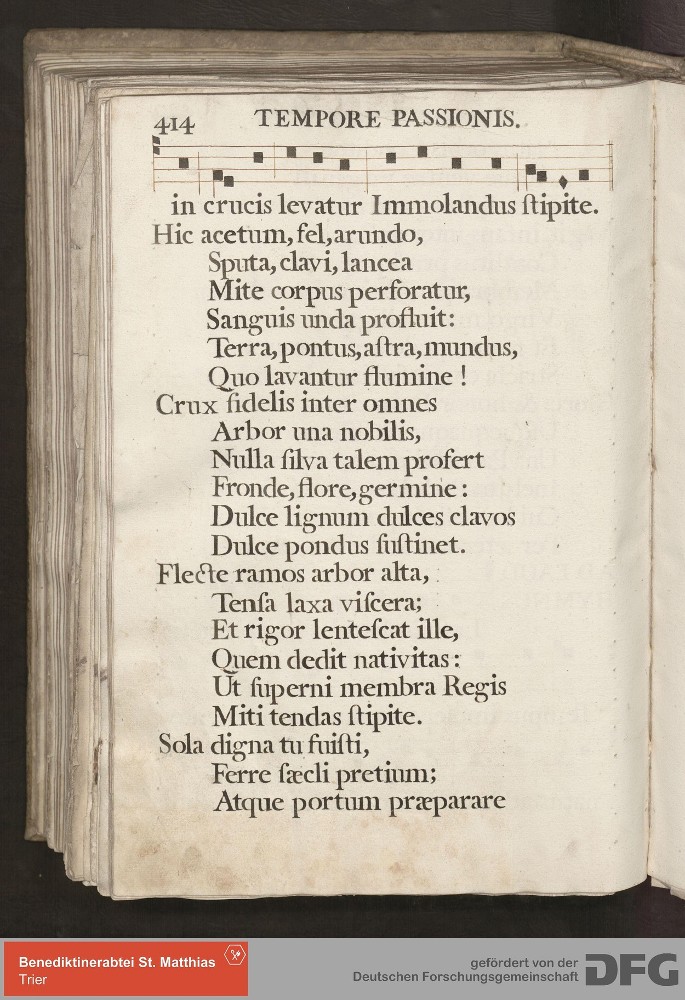 414 TEMPORE PASSIONIS.
in crucis levatur Immolandus ſtipite.
Hic acetum, fel, arundo,
Sputa, clavi, lancea
Mite corpus perforatur,
Sanguis unda profluit:
Terra, pontus, aſtra, mundus,
Quo lavantur flumine !
Crux fidelis inter omnes
Arbor una nobilis,
Nulla ſilva talem profert
Fronde, flore, germine:
Dulce lignum dulces clavos
Dulce pondus ſuſtinet.
Flecte ramos arbor alta,
Tenſa laxa viſcera;
Et rigor lenteſcat ille,
Quem dedit nativitas:
Ut ſuperni membra Regis
Miti tendas ſtipite.
Sola digna tu fuiſti,
Ferre ſæcli pretium;
Atque portum præparare
Benediktinerabtei St. Matthias
Trier
gefördert von der
Deutschen Forschungsgemeinschaft
DFG